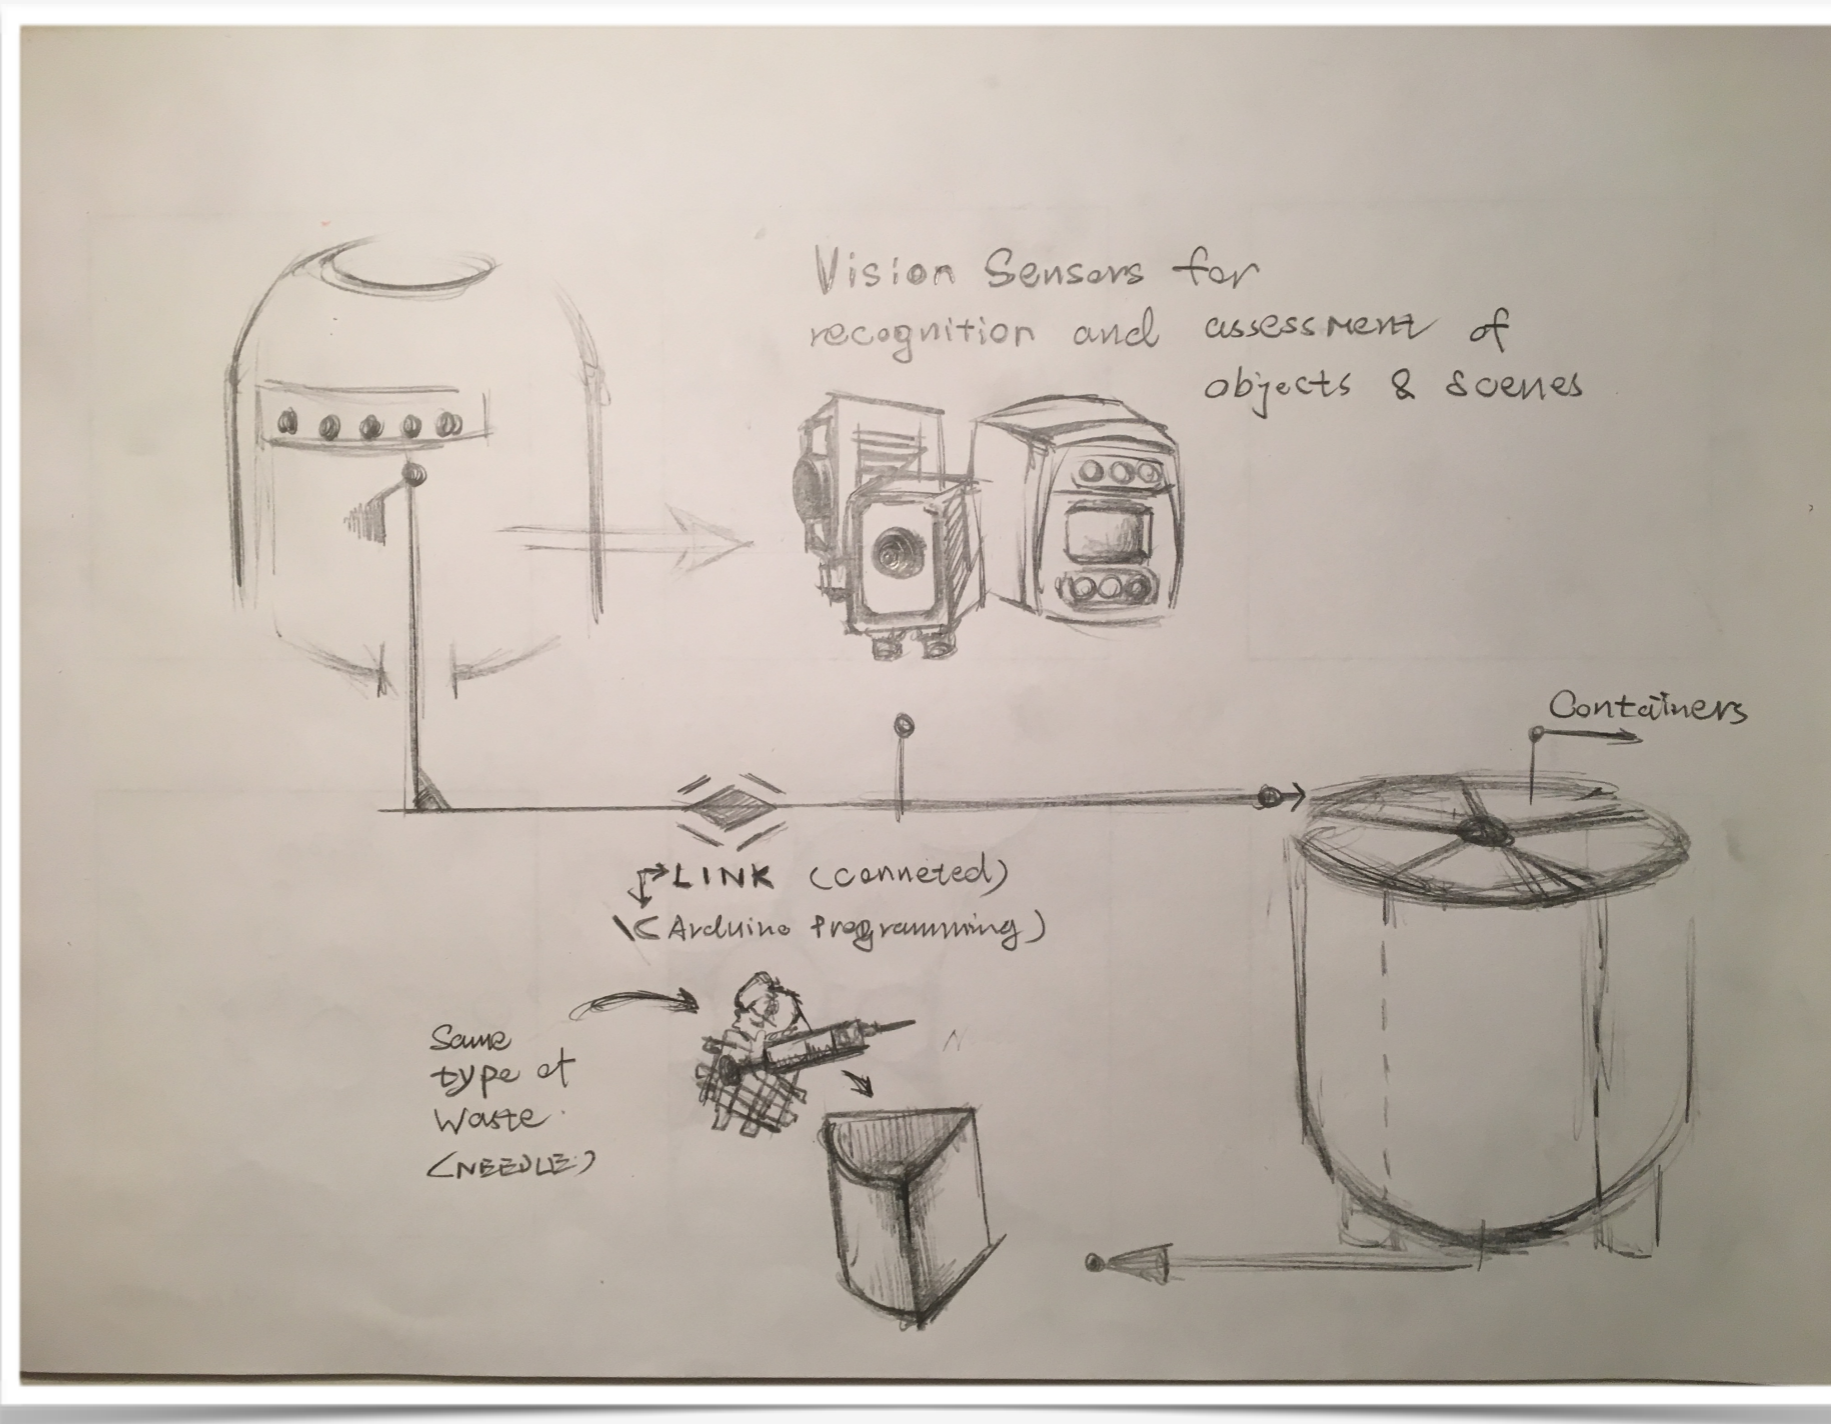 Vision Sensors for
recognition and assessment of
objects & scenes
Containers
LINK (conneted)
(Arduino Programming)
Same
type of
Waste
(NEEDLE)
N